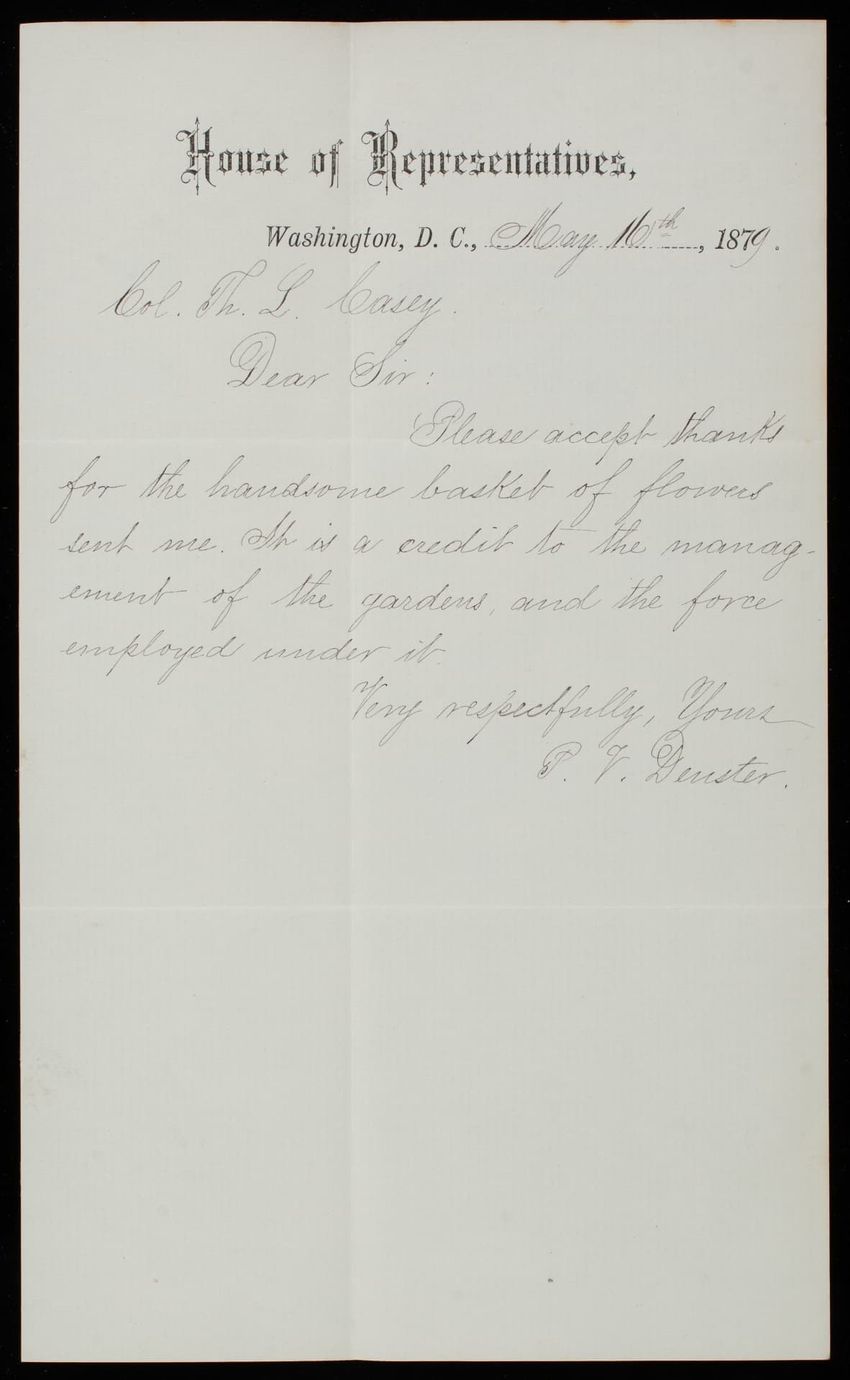 House of Representatives,
Washington, D. C., May 16th, 1879.
Col. Th. L. Casey.
Dear Sir:
Please accept thanks
for the handsome basket of flowers
sent me. It is a credit to the manag-
ement of the gardens, and the force
employed under it.
Very respectfully, Yours
P. V. Deuster.